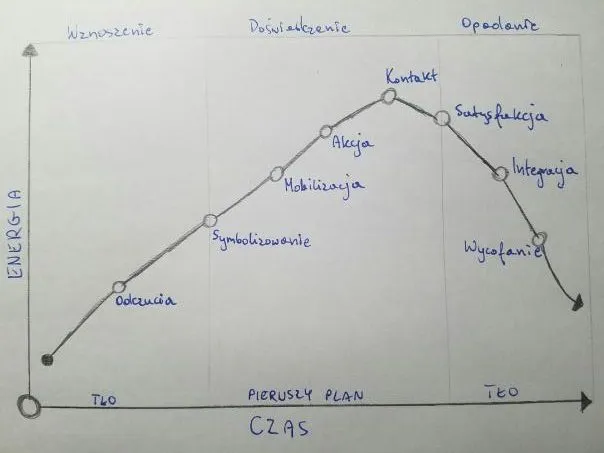 Wznoszenie
Doświadczenie
Opadanie
Kontakt
Satysfakcja
Akcja
Integracja
Mobilizacja
Symbolizowanie
Wycofanie
Odczucia
ENERGIA
TŁO
PIERWSZY PLAN
TŁO
CZAS